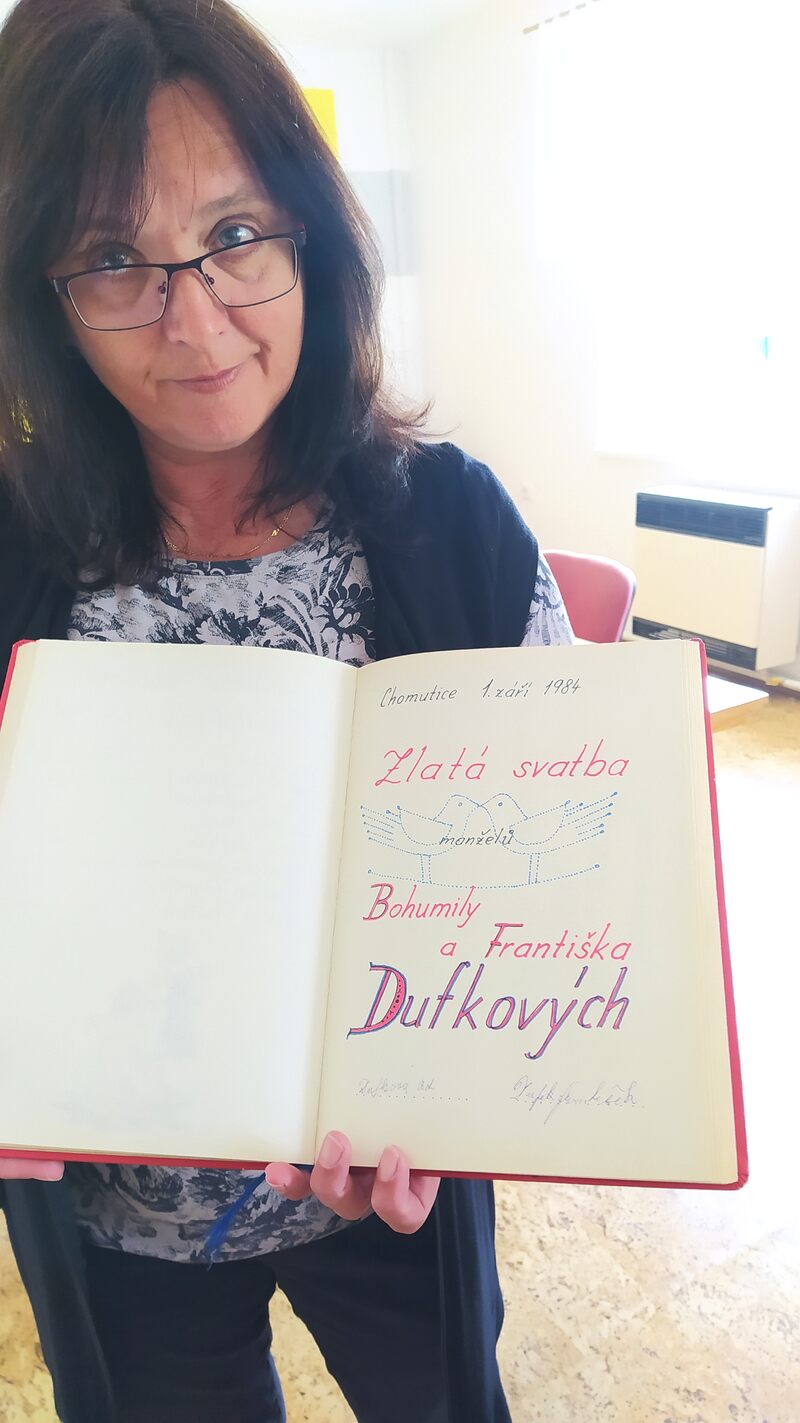 Chomutice 1. září 1984
Zlatá svatba
manželů
Bohumily
a Františka
Dufkových
Dufková
Dufek František